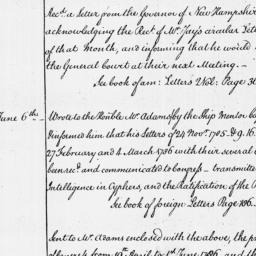 Rec.d a Letter from the Governor of New Hampshire
acknowledging the Rec.t of Mr. Jay's circular Lett
of that Month, and informing that he would
the General Court at their next Meeting. —
See book of am: Letters Vol: Page 3
June 6th — Wrote to the Honble Mr. Adams by the Ship Mentor
informed him that his Letters of 24 Nov. 1785 & 9. 16.
27 February and 4 March 1786 with their several
been rec.d and communicated to Congress — transmitte
Intelligence in Cyphers, and the Ratification of the
See book of foreign Letters Page 186. —
Sent to Mr. Adams enclosed with the above, the
from 10th April to 1st June 1786 and the